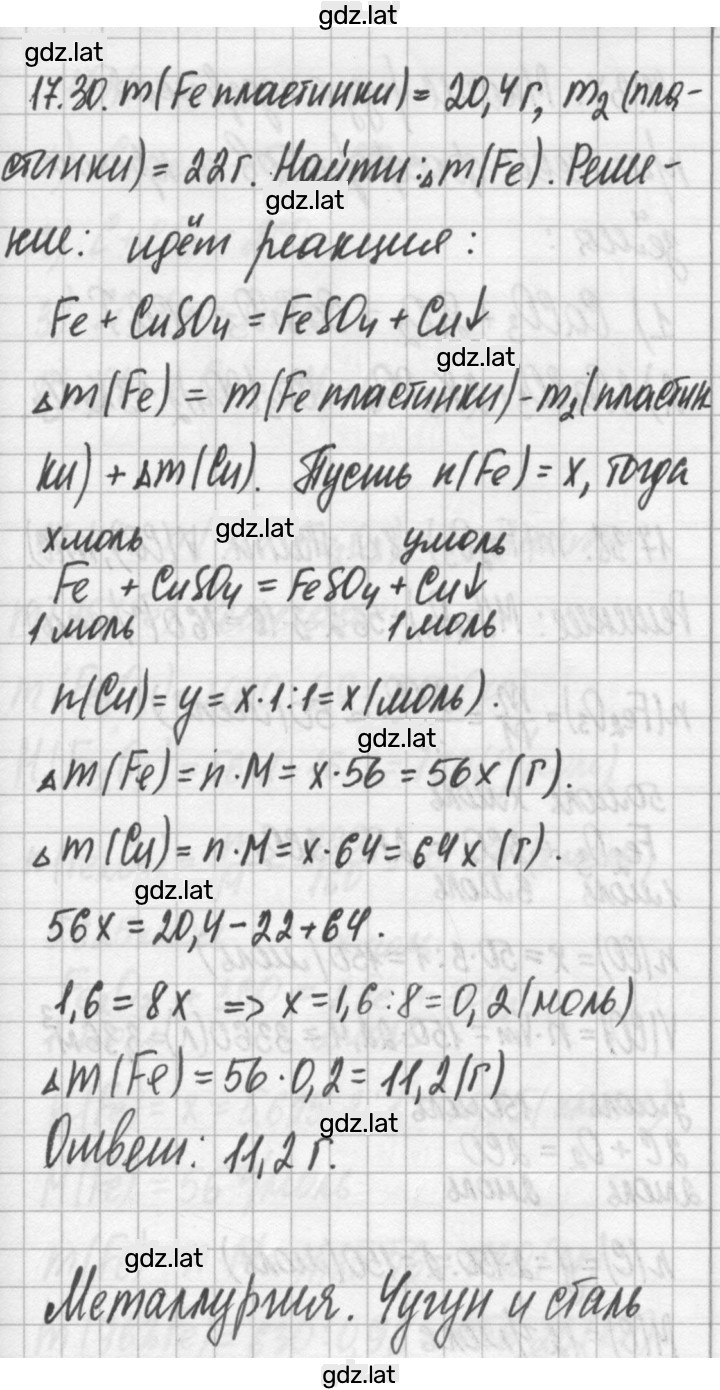 gdz.lat
gdz.lat
17.30. m(Fe пластинки) = 20,4 г, m₂ (пла-
стинки) = 22 г. Найти: ▵m(Fe). Реше-
gdz.lat
ние: идёт реакция:
Fe + CuSO₄ = FeSO₄ + Cu↓
gdz.lat
▵m(Fe) = m(Fe пластинки) - m₂(пластин
ки) + ▵m(Cu). Пусть n(Fe) = x, тогда
gdz.lat
xмоль умоль
Fe + CuSO₄ = FeSO₄ + Cu↓
1 моль 1 моль
n(Cu) = y = x·1:1 = x (моль).
gdz.lat
▵m(Fe) = n·M = x·56 = 56x (г).
▵m(Cu) = n·M = x·64 = 64x (г).
gdz.lat
56x = 20,4 - 22 + 64.
1,6 = 8x => x = 1,6:8 = 0,2 (моль)
▵m(Fe) = 56·0,2 = 11,2 (г)
gdz.lat
Ответ: 11,2 г.
gdz.lat
Металлургия. Чугун и сталь
gdz.lat